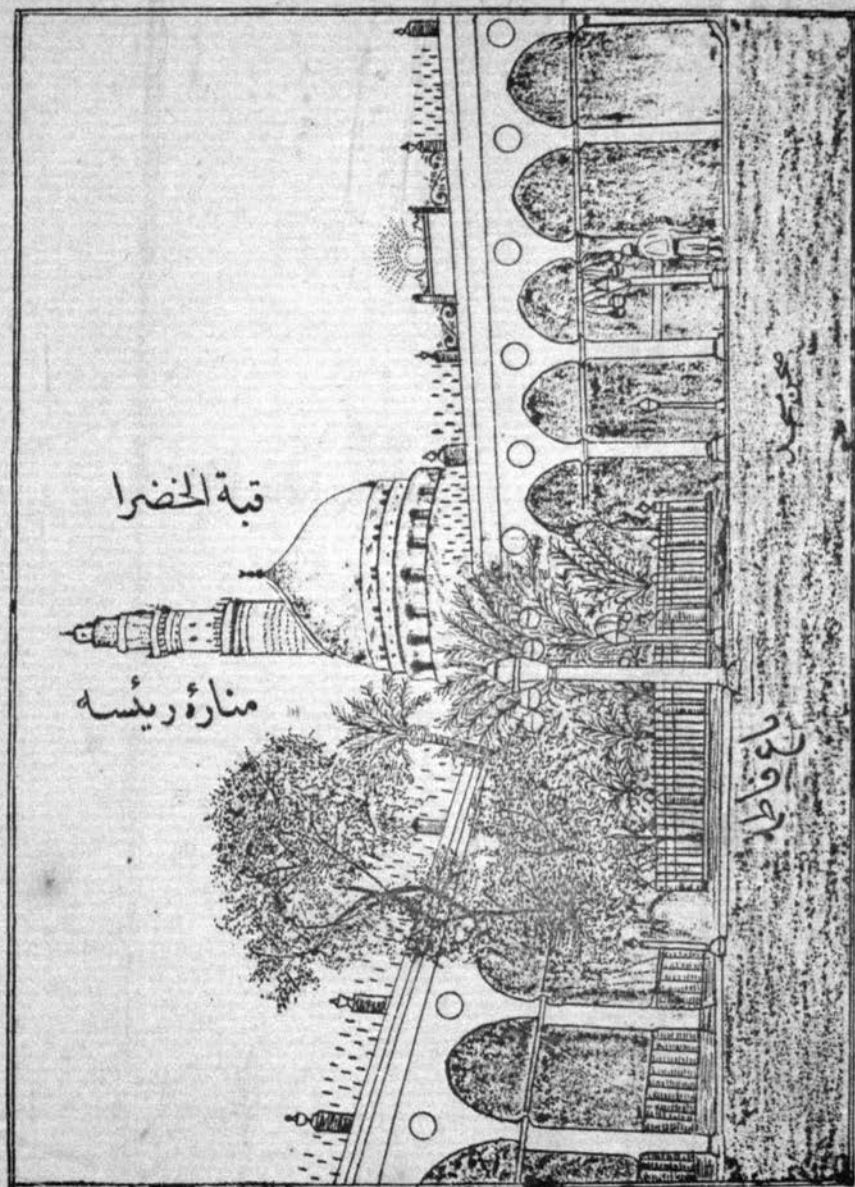 قبة الخضرا
منارۀ ريئسه
صحن مسجد
باغ فاطمه